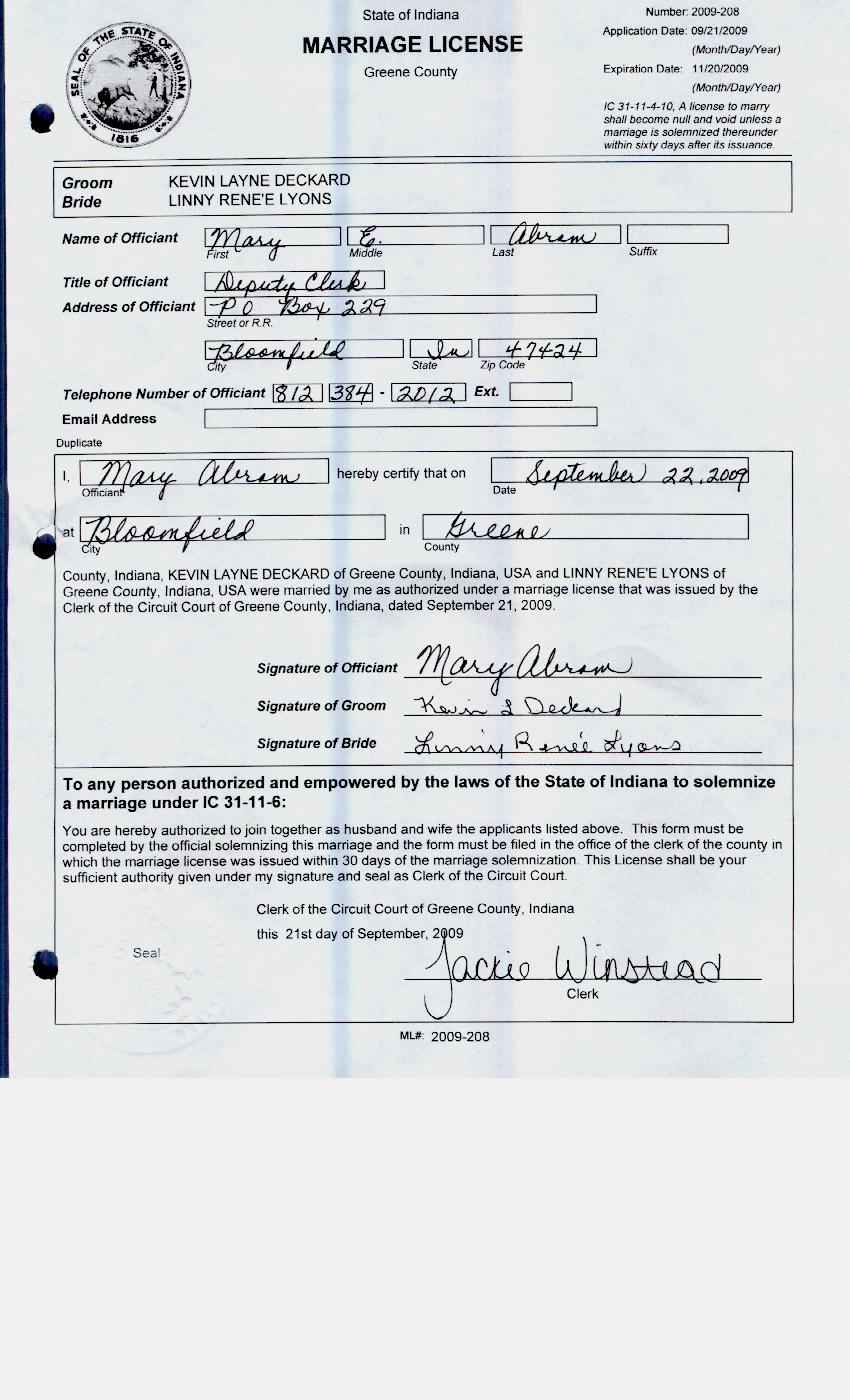 State of Indiana
MARRIAGE LICENSE
Greene County
Number: 2009-208
Application Date: 09/21/2009
(Month/Day/Year)
Expiration Date: 11/20/2009
(Month/Day/Year)
IC 31-11-4-10, A license to marry
shall become null and void unless a
marriage is solemnized thereunder
within sixty days after its issuance.
SEAL OF THE STATE OF INDIANA
1816
Groom KEVIN LAYNE DECKARD
Bride LINNY RENE'E LYONS
Name of Officiant Mary E. Abram
First Middle Last Suffix
Title of Officiant Deputy Clerk
Address of Officiant PO Box 229
Street or R.R.
Bloomfield In 47424
City State Zip Code
Telephone Number of Officiant 812 384 - 2012 Ext.
Email Address
Duplicate
I, Mary Abram hereby certify that on September 22, 2009
Officiant Date
at Bloomfield in Greene
City County
County, Indiana, KEVIN LAYNE DECKARD of Greene County, Indiana, USA and LINNY RENE'E LYONS of
Greene County, Indiana, USA were married by me as authorized under a marriage license that was issued by the
Clerk of the Circuit Court of Greene County, Indiana, dated September 21, 2009.
Signature of Officiant Mary Abram
Signature of Groom Kevin L Deckard
Signature of Bride Linny Renée Lyons
To any person authorized and empowered by the laws of the State of Indiana to solemnize
a marriage under IC 31-11-6:
You are hereby authorized to join together as husband and wife the applicants listed above. This form must be
completed by the official solemnizing this marriage and the form must be filed in the office of the clerk of the county in
which the marriage license was issued within 30 days of the marriage solemnization. This License shall be your
sufficient authority given under my signature and seal as Clerk of the Circuit Court.
Clerk of the Circuit Court of Greene County, Indiana
this 21st day of September, 2009
Seal
Jackie Winstead
Clerk
ML#: 2009-208